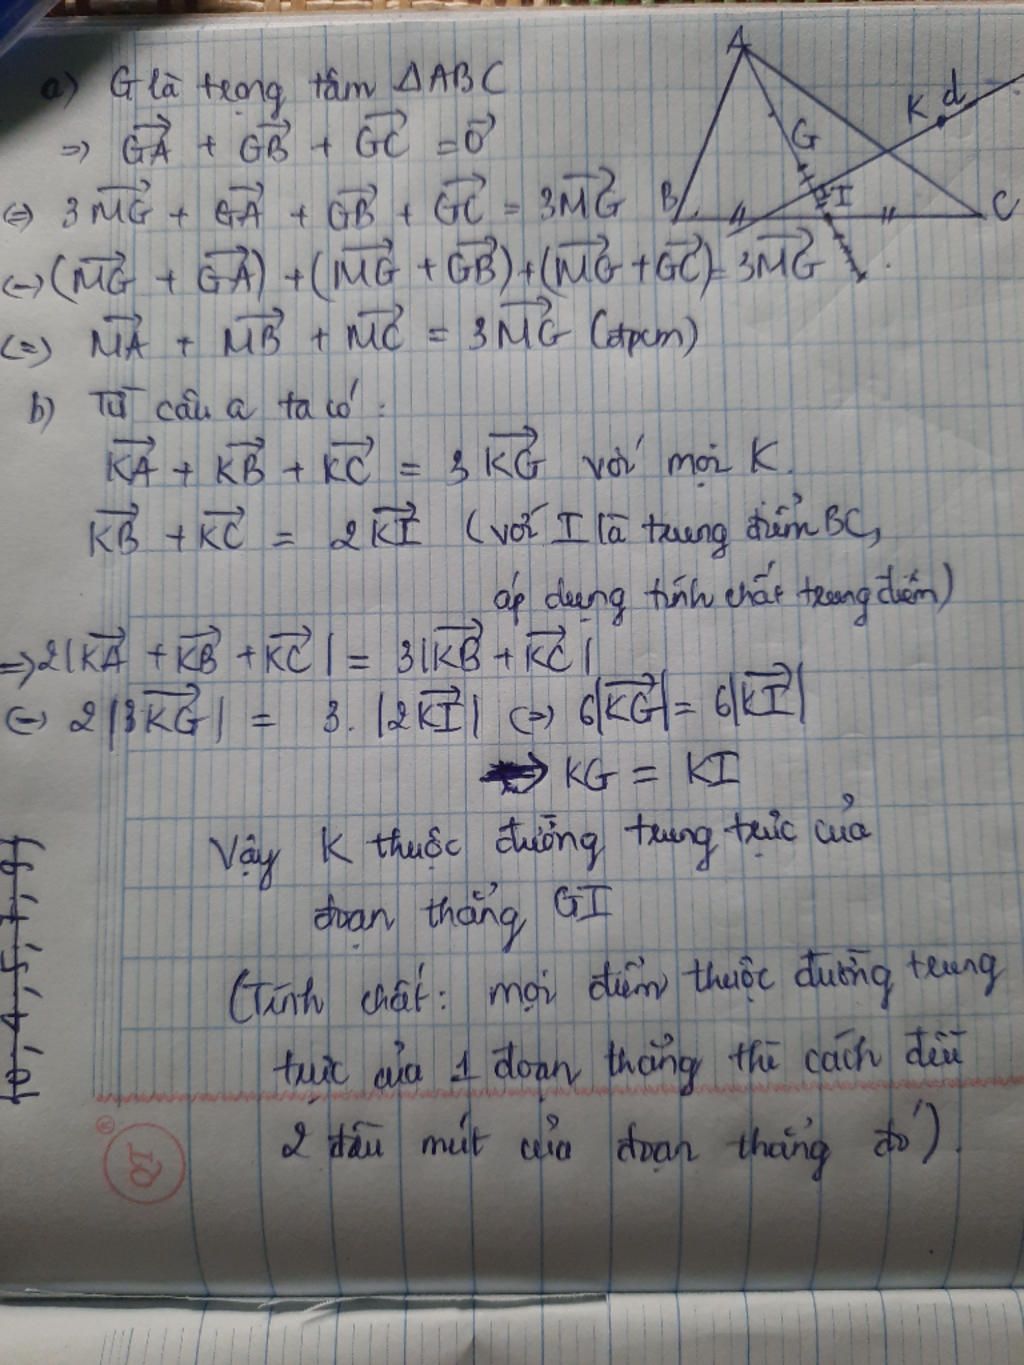 a) G là trọng tâm ΔABC
⇒ \overrightarrow{GA} + \overrightarrow{GB} + \overrightarrow{GC} = \vec{0}
⇔ 3\overrightarrow{MG} + \overrightarrow{GA} + \overrightarrow{GB} + \overrightarrow{GC} = 3\overrightarrow{MG}
⇔ (\overrightarrow{MG} + \overrightarrow{GA}) + (\overrightarrow{MG} + \overrightarrow{GB}) + (\overrightarrow{MG} + \overrightarrow{GC}) = 3\overrightarrow{MG}
⇔ \overrightarrow{MA} + \overrightarrow{MB} + \overrightarrow{MC} = 3\overrightarrow{MG} (đpcm)
A
K d
G
B I C
b) Từ câu a ta có:
\overrightarrow{KA} + \overrightarrow{KB} + \overrightarrow{KC} = 3\overrightarrow{KG} với mọi K.
\overrightarrow{KB} + \overrightarrow{KC} = 2\overrightarrow{KI} (với I là trung điểm BC,
áp dụng tính chất trung điểm)
⇒ 2|\overrightarrow{KA} + \overrightarrow{KB} + \overrightarrow{KC}| = 3|\overrightarrow{KB} + \overrightarrow{KC}|
⇔ 2|3\overrightarrow{KG}| = 3.|2\overrightarrow{KI}| ⇔ 6|\overrightarrow{KG}| = 6|\overrightarrow{KI}|
→ KG = KI
Vậy K thuộc đường trung trực của
đoạn thẳng GI
(Tính chất: mọi điểm thuộc đường trung
trực của 1 đoạn thẳng thì cách đều
2 đầu mút của đoạn thẳng đó).